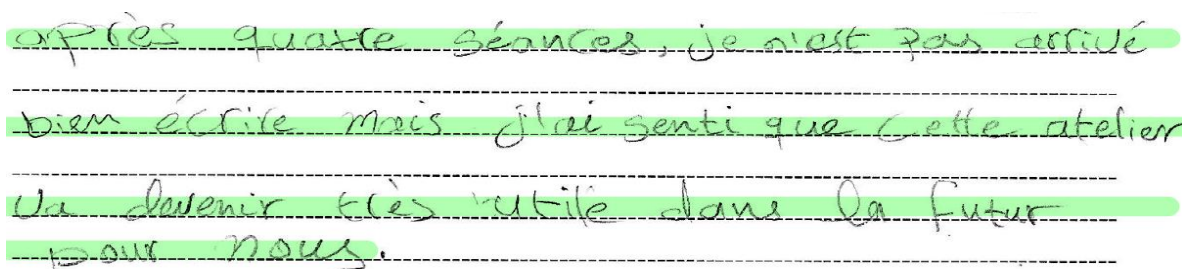 après quatre séances, je n'est pas arrivé
bien écrire mais j'ai senti que cette atelier
va devenir très utile dans la futur
pour nous.